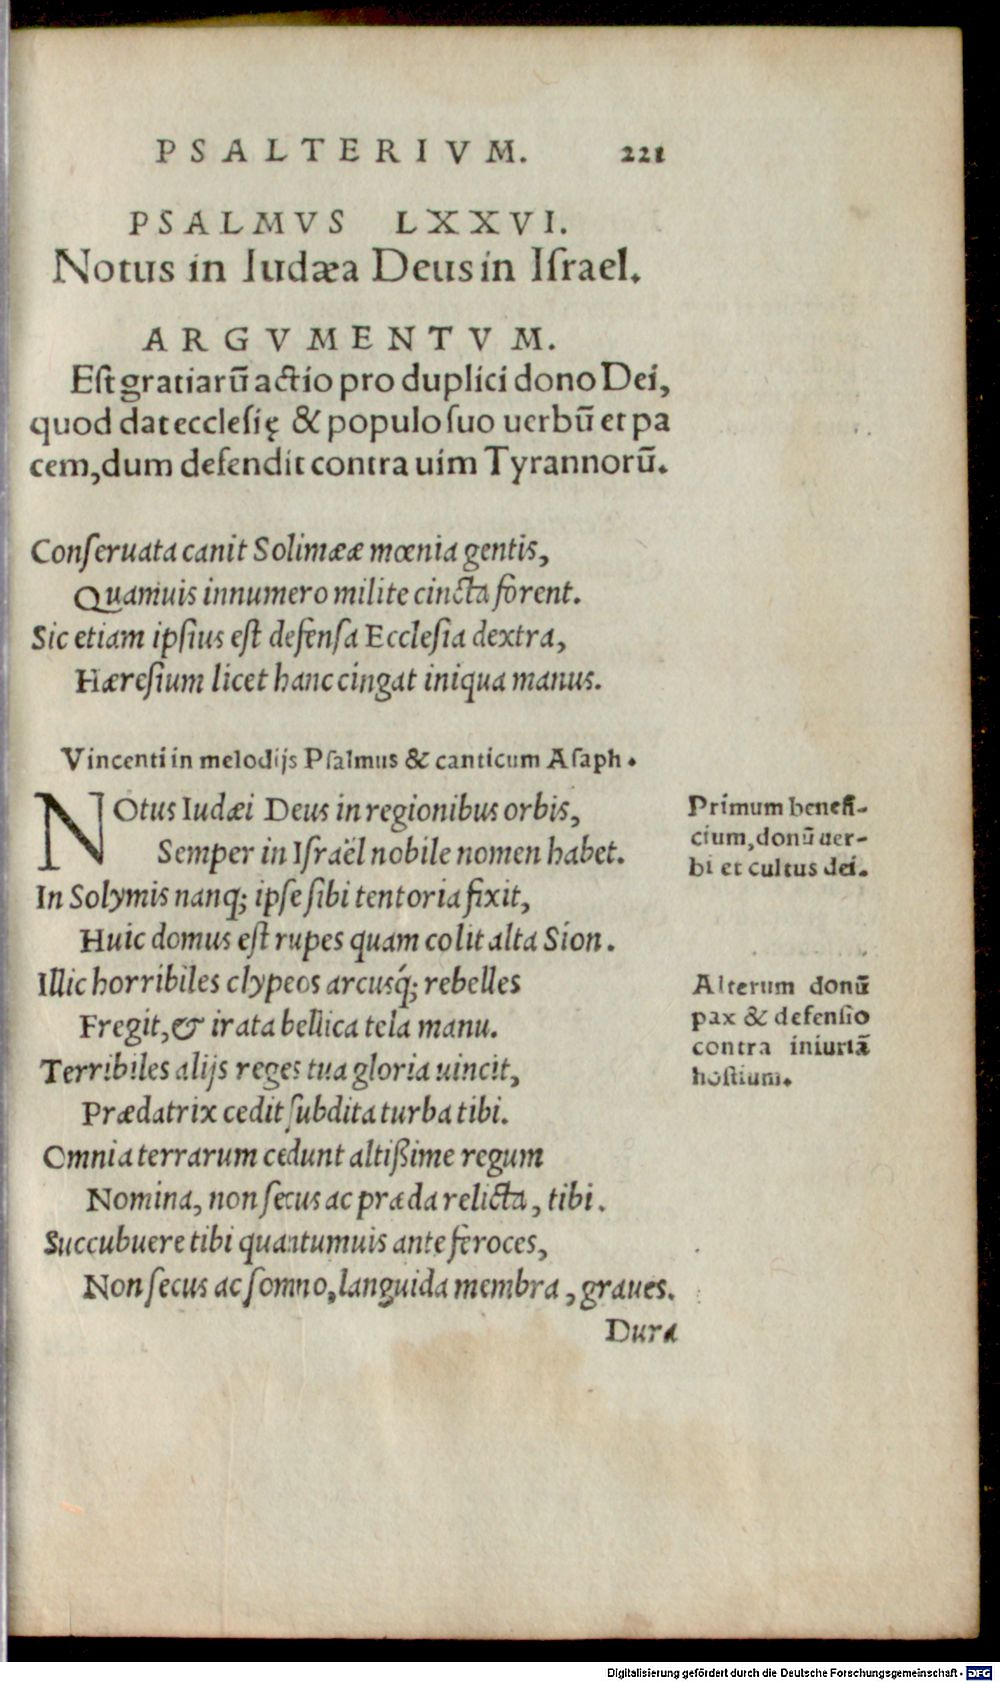 PSALTERIVM. 221
PSALMVS LXXVI.
Notus in Iudæa Deus in Iſrael.
ARGVMENTVM.
Eſt gratiarũ actio pro duplici dono Dei,
quod dat eccleſię & populo ſuo uerbũ et pa
cem, dum defendit contra uim Tyrannorũ.
Conſeruata canit Solimææ mœnia gentis,
Quamuis innumero milite cincta forent.
Sic etiam ipſius eſt defenſa Eccleſia dextra,
Hæreſium licet hanc cingat iniqua manus.
Vincenti in melodijs Pſalmus & canticum Aſaph.
NOtus Iudæi Deus in regionibus orbis,
Semper in Iſraël nobile nomen habet.
In Solymis nanq; ipſe ſibi tentoria fixit,
Huic domus eſt rupes quam colit alta Sion.
Illic horribiles clypeos arcusq́; rebelles
Fregit, & irata bellica tela manu.
Terribiles alijs reges tua gloria uincit,
Prædatrix cedit ſubdita turba tibi.
Omnia terrarum cedunt altißime regum
Nomina, non ſecus ac præda relicta, tibi.
Succubuere tibi quantumuis ante feroces,
Non ſecus ac ſomno, languida membra, graues.
Dura
Primum benefi-
cium, donũ uer-
bi et cultus dei.
Alterum donũ
pax & defenſio
contra iniuriã
hoſtium.
Digitalisierung gefördert durch die Deutsche Forschungsgemeinschaft - DFG